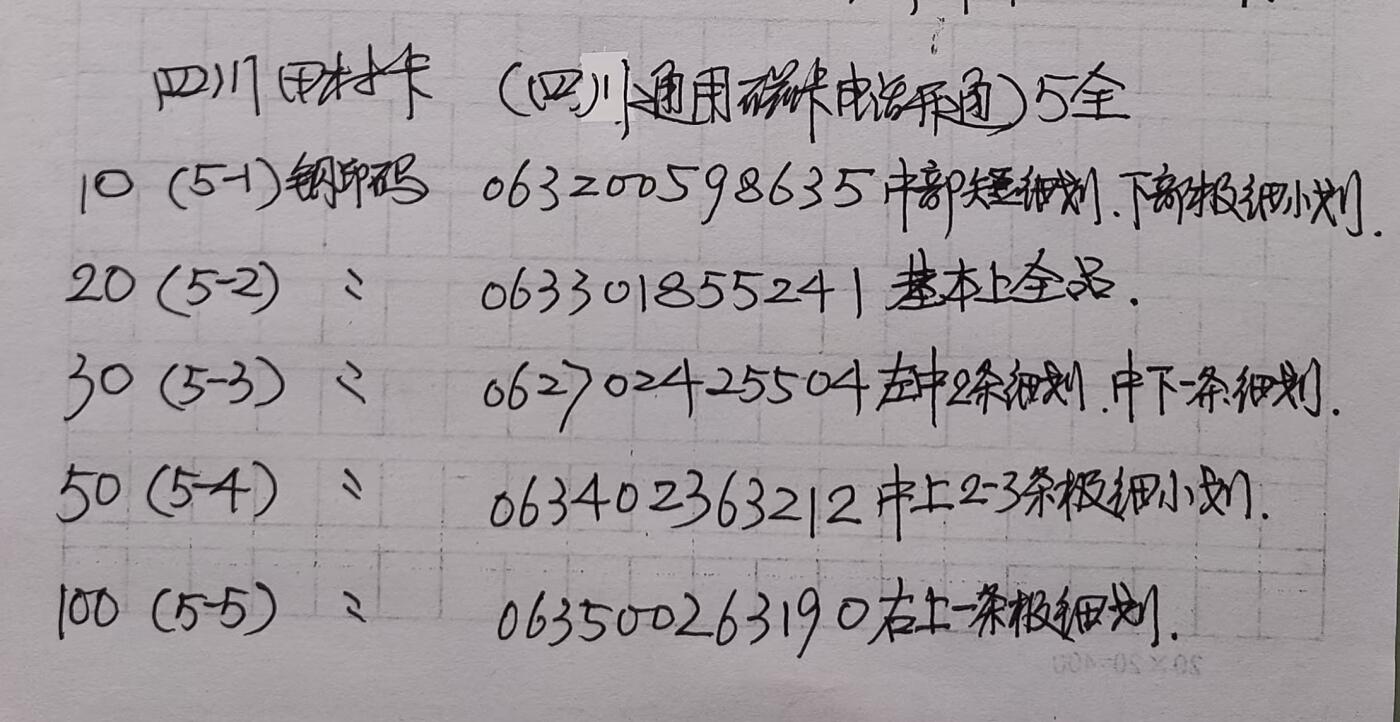 四川田村卡 (四川通用磁卡电话开通)5全
10 (5-1)钢印码 063200598635中部短细划.下部极细小划.
20 (5-2) 〃 063301855241基本上全品.
30 (5-3) 〃 062702425504左中2条细划.中下一条细划.
50 (5-4) 〃 063402363212中上2-3条极细小划.
100 (5-5) 〃 063500263190右上一条极细划.
20×20=400